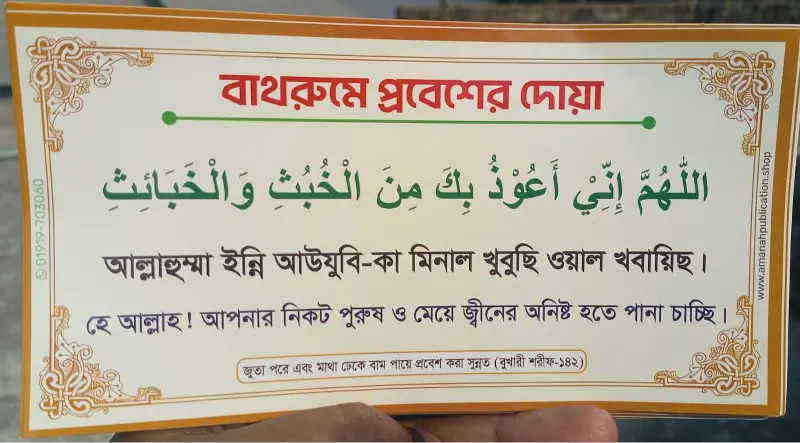 বাথরুমে প্রবেশের দোয়া
اللّٰهُمَّ إِنِّيْ أَعُوْذُ بِكَ مِنَ الْخُبُثِ وَالْخَبَائِثِ
আল্লাহুম্মা ইন্নি আউযুবি-কা মিনাল খুবুছি ওয়াল খবায়িছ।
হে আল্লাহ! আপনার নিকট পুরুষ ও মেয়ে জ্বীনের অনিষ্ট হতে পানা চাচ্ছি।
জুতা পরে এবং মাথা ঢেকে বাম পায়ে প্রবেশ করা সুন্নত (বুখারী শরীফ-১৪২)
01919-703060
www.amanahpublication.shop